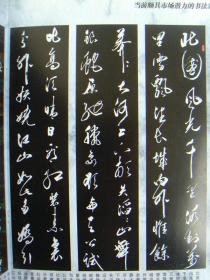 当前颇具市场潜力的书法
北國風光千里冰封萬
里雪飘望长城内外惟馀
莽莽大河上下顿失滔滔山舞
银蛇原驰蜡象欲与天公试
比高须晴日看红装素裹
分外妖娆江山如此多娇引